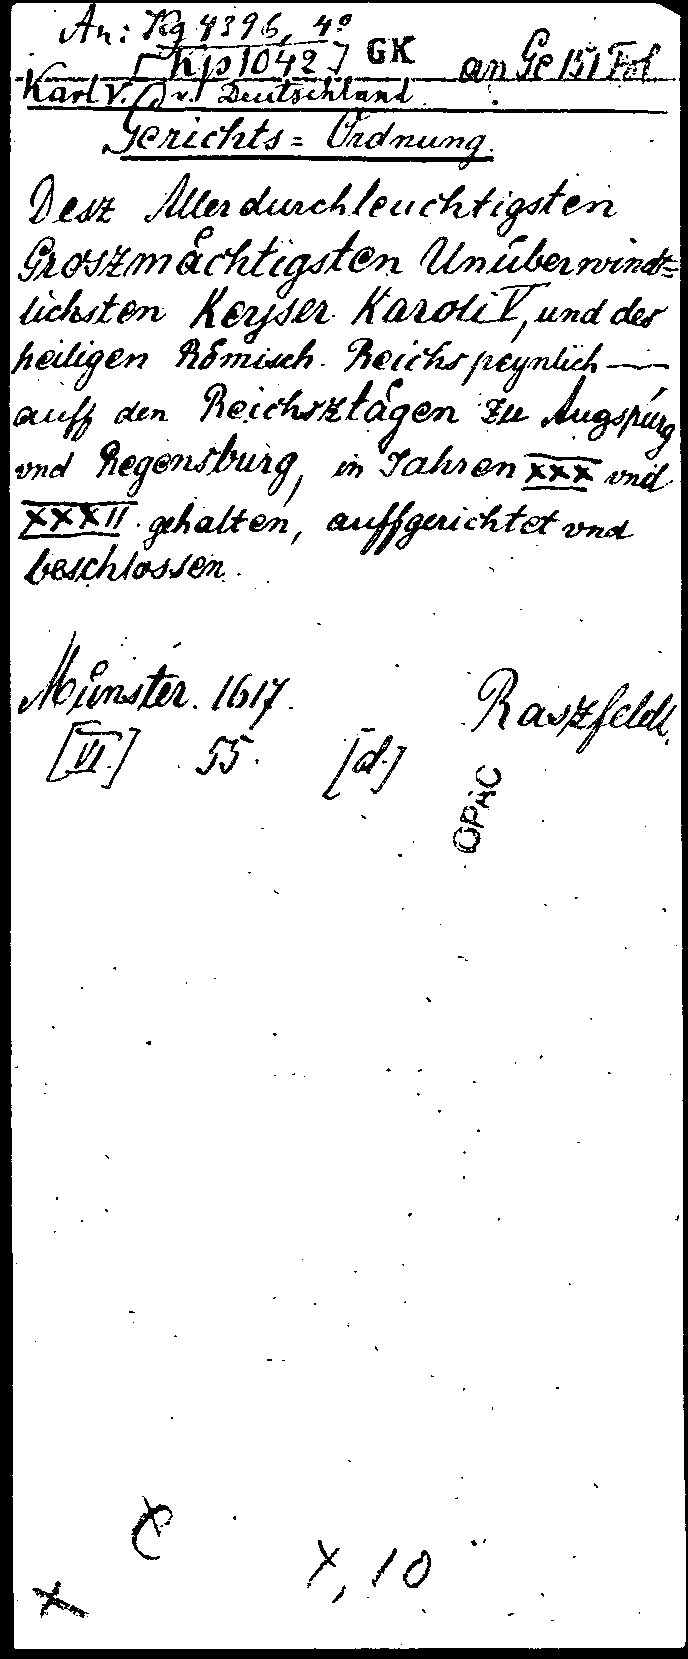 An: Kg 4396, 4°
[Kp 1042] GK an Ge 151 Fol
Karl V. v. Deutschland.
Gerichts=Ordnung.
Desz Allerdurchleuchtigsten
Groszmåchtigsten Unüberwindt=
lichsten Keyser Karoli V, und des
heiligen Römisch. Reichs peynlich —
auff den Reichsztågen zu Augspurg
vnd Regensburg, in Jahren XXX vnd
XXXII gehalten, auffgerichtet vnd
beschlossen.
Můnster. 1617. Raszfeldt.
[VI.] 55. [d.]
OPAC
X, 10